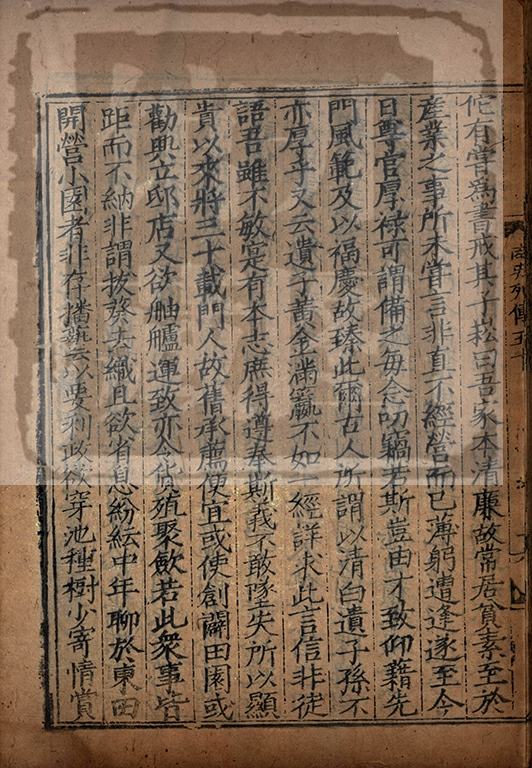 佗有嘗爲書戒其子崧曰吾家本清廉故常居貧素至於
産業之事所未嘗言非直不經營而已薄躬遭逢遂至今
日尊官厚祿可謂備之每念叨竊若斯豈由才致仰藉先
門風範及以福慶故臻此爾古人所謂以清白遺子孫不
亦厚乎又云遺子黃金滿籯不如一經詳求此言信非徒
語吾雖不敏寔有本志庶得遵奉斯義不敢墜失所以顯
貴以來將三十載門人故舊承薦便宜或使創闢田園或
勸興立邸店又欲舳艫運致亦令貨殖聚斂若此衆事皆
距而不納非謂拔葵去織且欲省息紛紜中年聊於東田
開營小園者非存播藝以要利政欲穿池種樹少寄情賞